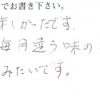 でお書き下さい。
まいかったです。
毎回違う味の
みたいです。